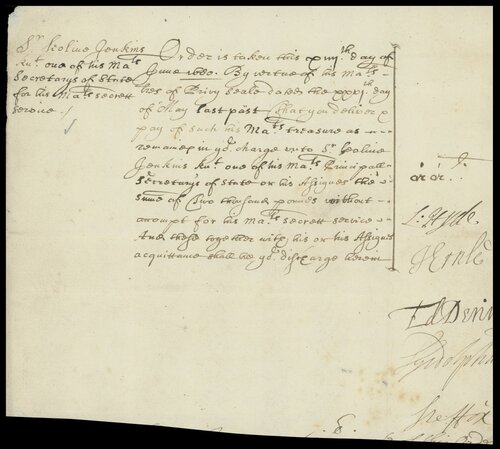 Sr Leoline Jenkins
Knt one of his Mats
Secretarys of State
for his Mats secrett
service ./
Order is taken this day of
June 1680. By virtue of his Mats
lres of Privy Seale dated the xxxjth day
of May last past That you deliver &
pay of such his Mats treasure as
remaines in yor charge unto Sr Leoline
Jenkins Knt one of his Mats Principall
Secretarys of State or his Assignes the
sume of Two thousand pounds without
accompt for his Mats secrett service
And these together with his or his Assignes
acquittance shall be yor discharge herein
L: Hyde
Ed Deri
Sydolphi